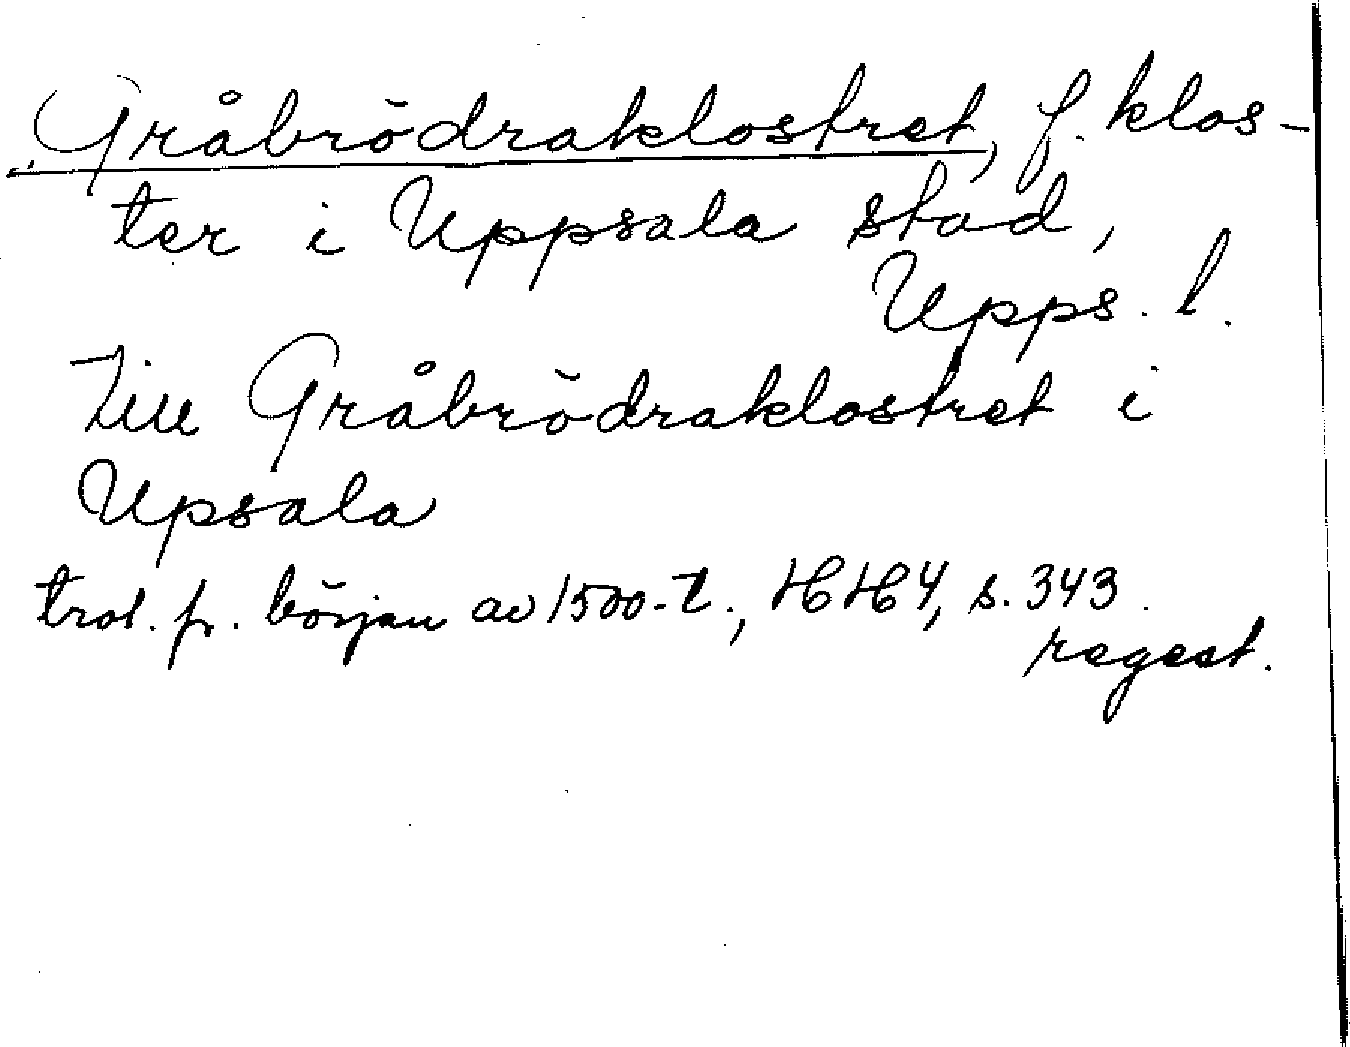 Gråbrödraklostret, f. klos-
ter i Uppsala stad,
Upps. l.
Till Gråbrödraklostret i
Upsala
trol. fr. början av 1500-t., HH 4, s. 343
regest.